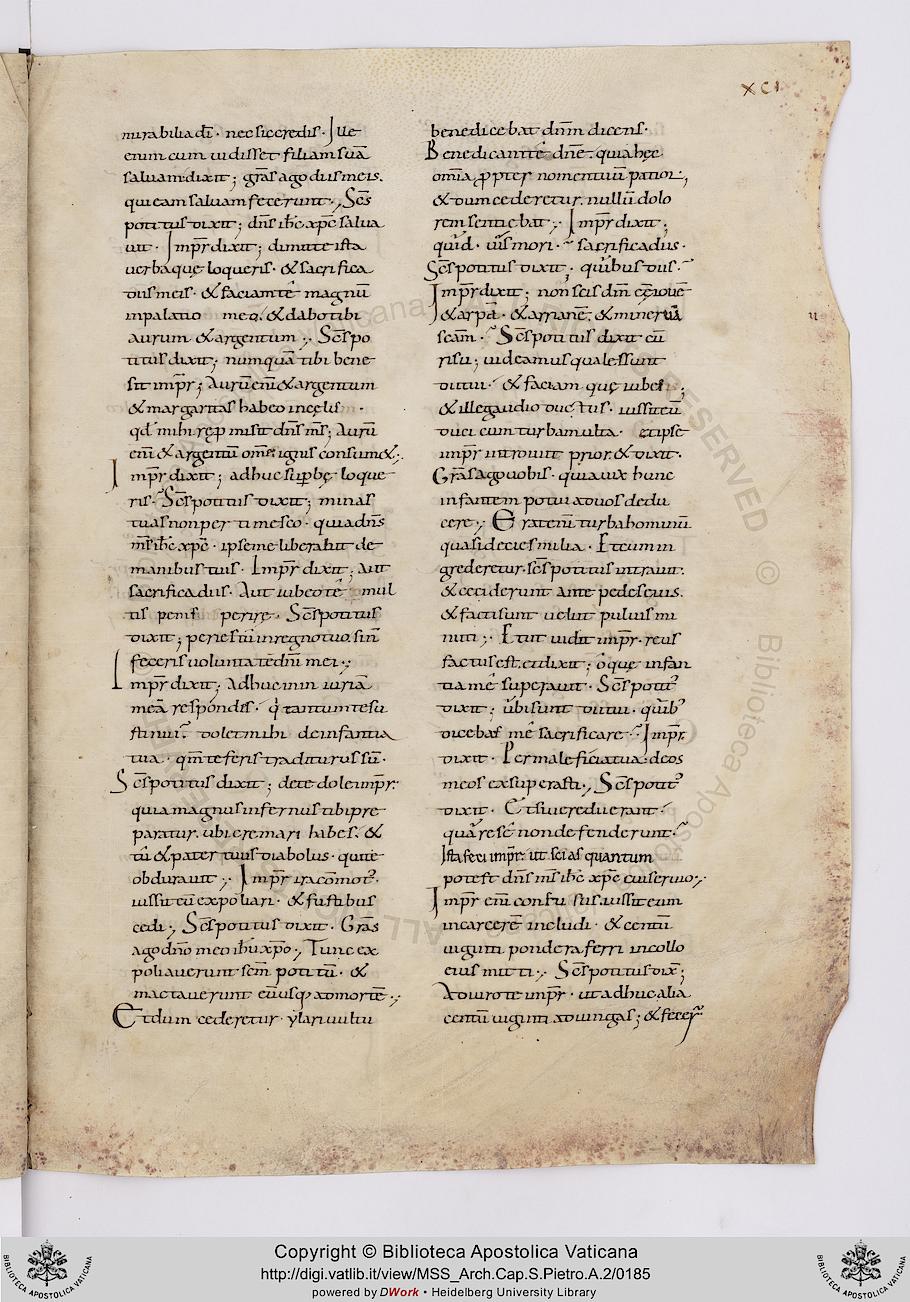 XCI
mirabilia dī · nec sic credis · Ille
enim cum vidisset filiam suā
salvam dixit ; grās ago diis meis.
qui eam salvam fecerunt ·, Scs̄
potitus dixit ; dn̄s ih̄c xp̄c salva
vit · Imp̄r dixit ; dimitte ista
verba quę loqueris · & sacrifica
diis meis · & faciam tē magnū
in palatio meo · & dabo tibi
aurum & argentum ·, Scs̄ po
titus dixit ; numquā tibi bene
sit imp̄r ; Aurū enī & argentum
& margaritas habeo in cęlis ·
qđ mihi rep misit dn̄s ms̄ ; Aurū
enī & argentū om̄e ignis consum& ;
Imp̄r dixit ; adhuc sup̄bę loque
ris · Scs̄ potitus dixit ; minas
tuas non per timesco · quia dn̄s
ms̄ ih̄c xp̄c · ipse me liberabit de
manibus tuis · Imp̄r dixit ; Aut
sacrifica diis · Aut iubeo tē mul
tis penis perire · Scs̄ potitus
dixit ; peries tū in regno tuo sīn
feceris voluntatē dn̄i mei ·,
Imp̄r dixit ; Adhuc in iniuriā
meā respondis · q̄ tantum te su
stinui · dolet mihi de infantia
tua · qm̄ te feris traditurus sū ·
Scs̄ potitus dixit ; de te dole imp̄r ·
quia magnus infernus tibi pre
paratur · ubi cremari habes · &
tū & pater tuus diabolus · qui te
obduravit ·, Imp̄r ira com̄ot᾽ ·
iussit eū expoliari · & fustibus
cedi ·, Scs̄ potitus dixit · Grās
ago dn̄o meo ih̄u xp̄o ·, Tunc ex
poliaverunt sc̄m potitū · &
mactaverunt eū usq; ad mortē ·,
Et dum cederetur · ylari vultu
benedicebat dn̄m dicens ·
Benedicam tē dn̄e · quia hęc
om̄ia ꝓpter nomen tuū patior ,
& dum cederetur · nullū dolo
rem sentiebat ·, Imp̄r dixit ;
quid · vīs mori · sacrifica diis ·
Scs̄ potitus dixit ; quibus diis ·
Imp̄r dixit ; non scis dm̄ ēē iovē
& arpā · & arrianē · & minervā
scam̄ · Scs̄ potitus dixit cū
risu ; videamus quales sunt
dii tui · & faciam quę iubes ;
& ille gaudio ductus · iussit eū
duci cum turba multa · et ipse
imp̄r introivit prior · & dixit ·
Grās ago vobis · quia vix hunc
infantem potui ad vos dedu
cere ·, Erat enī turba hominū
quasi decies milia · Et cum in
grederetur · scs̄ potitus intravit ·
& ceciderunt ante pedes eius ·
& facti sunt velut pulvis mi
nuti ·, Et ut vidit imp̄r · reus
factus est · et dixit ; o que infan
tia mē superavit · Scs̄ potit᾽
dixit ; ubi sunt dii tui · quib᾽
dicebas mē sacrificare · Imp̄r
dixit · Per maleficia tua deos
meos exsuperasti ·, Scs̄ potit᾽
dixit · Et si veredii erant ·
quārese nōn defenderunt ·
Ista feci imp̄r ut scias quantum
potest dn̄s ms̄ ih̄c xp̄c cui servio ·,
Imp̄r enī confusus · iussit eum
in carcerē includi · & centū
viginti pondera ferri in collo
eius mitti ·, Scs̄ potitus dix̄ ;
Adiuro te imp̄r · ut adhuc alia
centū viginti adiungas ; & fecer̄